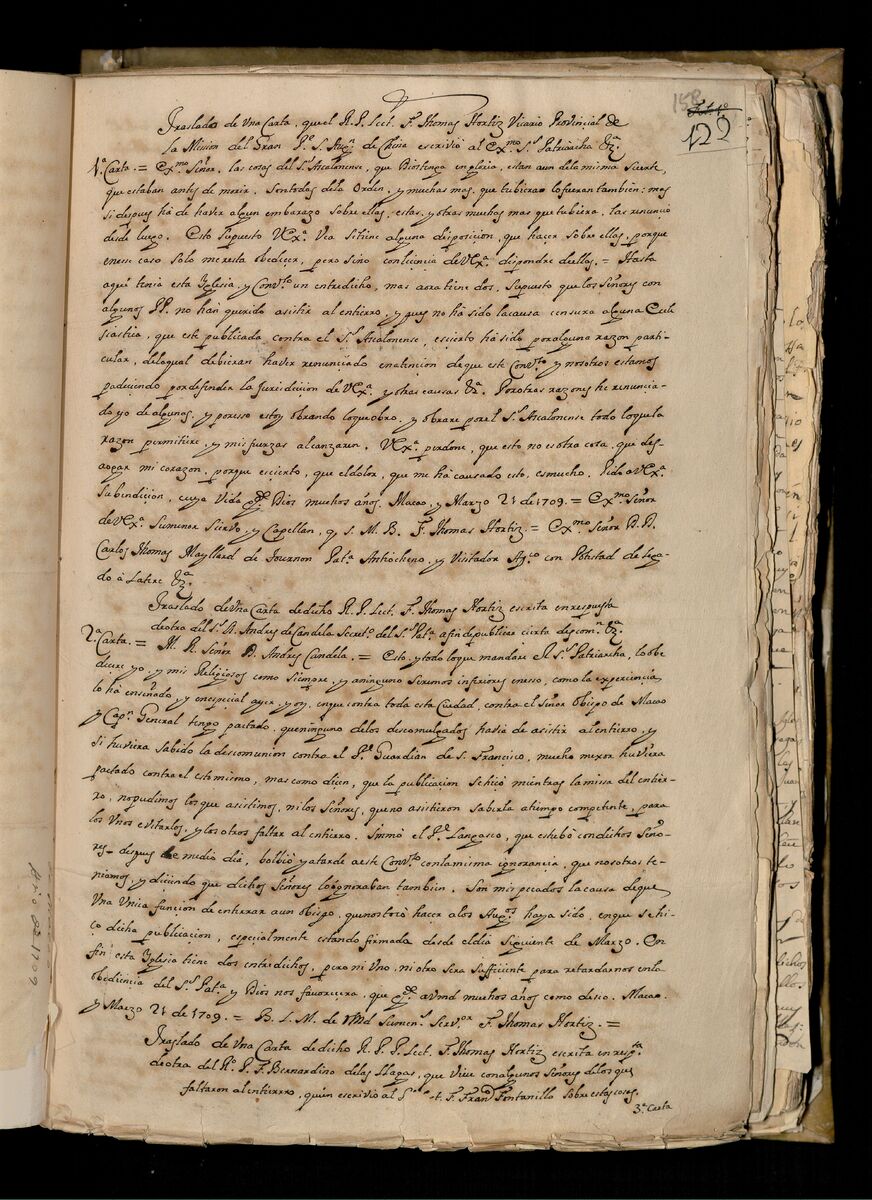 158
122
Traslado de Vna Carta, que el R. P. Lect. F. Thomas Hortiz Vicario Provincial de
la Mision del Gran P.e S. Aug.n de China escrivió al Ex.mo S.r Patriarcha &.a
1.a Carta. = Ex.mo Señor. las cosas del S.r Ascalonense, que Dios tenga en gloria, estan aun de la misma suerte,
que estaban antes de morir. Son todas de la Orden, y muchas mas, que tubiera lo fueran tambien: mas
si despues há de haver algun embarazo sobre ellas, estas, y otras muchas mas que tubiera, las renuncio
desde luego. Esto supuesto VEx.a Vea si tiene alguna disposicion, que hacer sobre ellas, porque
en ese caso solo me resta obedecer, pero sino con licencia de VEx.a dispondre de ellas. = Hasta
aquí tenia esta Iglesia, y Conv.to un entredicho, mas aora tiene dos, supuesto que los Señores con
algunos PP. no hán querido asistir al entierro, y pues no há sido la causa censura alguna Ecle
siastica, que esté publicada contra el S.r Ascalonense, es cierto há sido por alguna razon parti-
cular, de la qual debieran haver renunciado en atencion de que este Conv.to y nosotros estamos
padeciendo por defender la Jurisdiccion de VEx.a y otras causas &.a Por otras razones he renuncia-
do yo de algunos, y por esso estoy obrando lo que obro, y obrare por el S.r Ascalonense todo lo que la
razon permitiere, y mis fuerzas alcanzaren. VEx.a perdone, que esto no es otra cosa, que des-
aogar mi corazon, porque es cierto, que el dolor, que me há causado esto, es mucho. Pido a VEx.a
su bendicion, cuya Vida g.de Dios muchos años. Macao, y Marzo 21 de 1709. = Ex.mo Señor
de VEx.a Su menor Siervo, y Capellan, q. S. M. B. F. Thomas Hortiz = Ex.mo Señor D. D.
Carlos Thomas Mayllard de Tournon Pat.a Antiocheno, y Visitador Ap.co con Potestad de Lega-
do â Latere &.a
Traslado de Vna Carta de dicho R. P. Lect. F. Thomas Hortiz escrita en respuesta
de otra del S.r D. Andres de Candela Secret.o del S.r Pat.a a fin de publicar cierta descom.n &.a
2.a Carta. = M. R. Señor D. Andres Candela. = Esto, y todo lo que mandare el S.r Patriarcha, lo obe
decere yo, y mis Religiosos como siempre, y a ninguno seremos inferiores en esso, como la experiencia
lo há enseñado, y en especial ayer, y oy, en que contra toda esta Ciudad, contra el Señor Obispo de Macao
y Cap.n General tengo pactado, que ninguno de los descomulgados havia de asistir al entierro, y
si huviera sabido la descomunion contra el P.e Guardian de S. Francisco, mucho mexor huviera
pactado contra el esto mismo, mas como dicen, que la publicacion se hizo mientras la missa del entier-
ro, no pudimos los que asistimos, ni los Señores, que no asistieron saberla a tiempo competente, para
los Vnos evitarlos, y los otros faltar al entierro. Immo el P.e Langasco, que estubo con dichos Seño-
res despues de medio dia, bolbió ya tarde a este Conv.to con la misma ignorancia, que nosotros te-
niamos, y diciendo que dichos Señores lo ignoraban tambien. Son mis pecados la causa de que
Vna Vnica funcion de enterrar a un obispo, que nos tocó hacer a los Aug.os haya sido, en que se hi-
ço dicha publicacion, especialmente estando firmada desde el dia siguiente de Marzo. En
fin esta Yglesia tiene dos entredichos, pero ni Vno, ni otro sera sufficiente para retardarnos en la
obediencia del S.r Pat.a y Dios nos favorecera, que g.de a Vmd muchos años como deseo. Macao
y Marzo 21 de 1709. = B. S. M. de Vmd Su men.r Serv.or F. Thomas Hortiz. =
Traslado de Vna Carta de dicho R. P. P. Lect. F. Thomas Hortiz escrita en resp.ta
de otra del R.o P. F. Bernardino de las Llagas, que Vive con algunos Señores de los que
faltaron al entierro, quien escrivió al F. Fran.co Fontanillo sobre estas cosas.
3.a Carta
Año de 1709